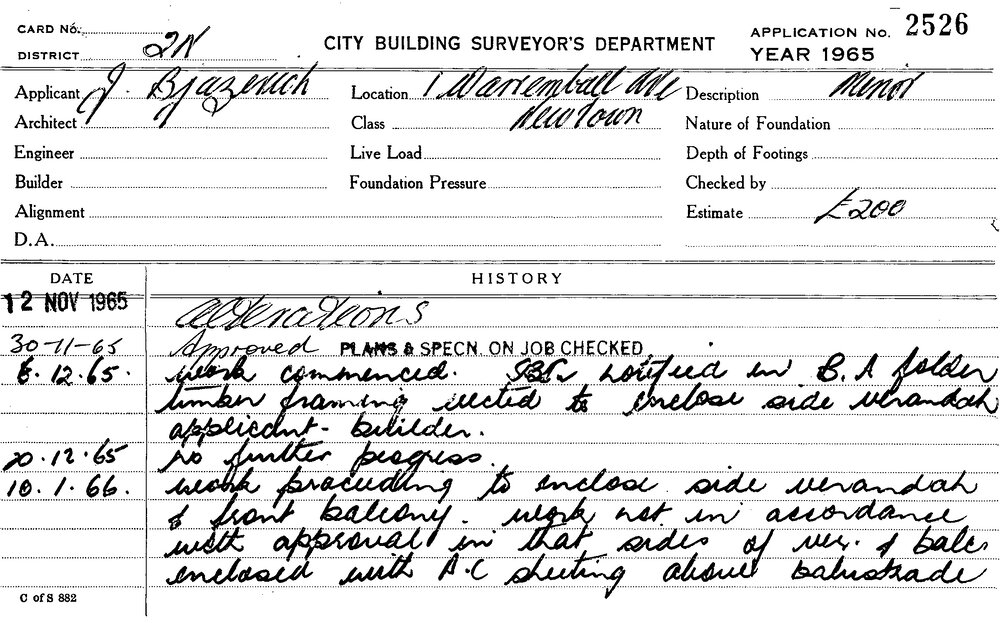 CARD No.
DISTRICT 2N
CITY BUILDING SURVEYOR'S DEPARTMENT
APPLICATION No. 2526
YEAR 1965
Applicant J. Bjazevich Location 1 Warremball Ave Description Minor
Architect Class Newtown Nature of Foundation
Engineer Live Load Depth of Footings
Builder Foundation Pressure Checked by
Alignment Estimate £200
D.A.
DATE HISTORY
12 NOV 1965 alterations
30-11-65 Approved PLANS & SPECN. ON JOB CHECKED
8.12.65. work commenced. notified in B.A folder
timber framing erected to enclose side verandah
applicant - builder.
20.12.65 no further progress.
10.1.66. work proceeding to enclose side verandah
& front balcony. work not in accordance
with approval in that sides of ver. & balc.
enclosed with A.C sheeting above baluskade
C of S 882